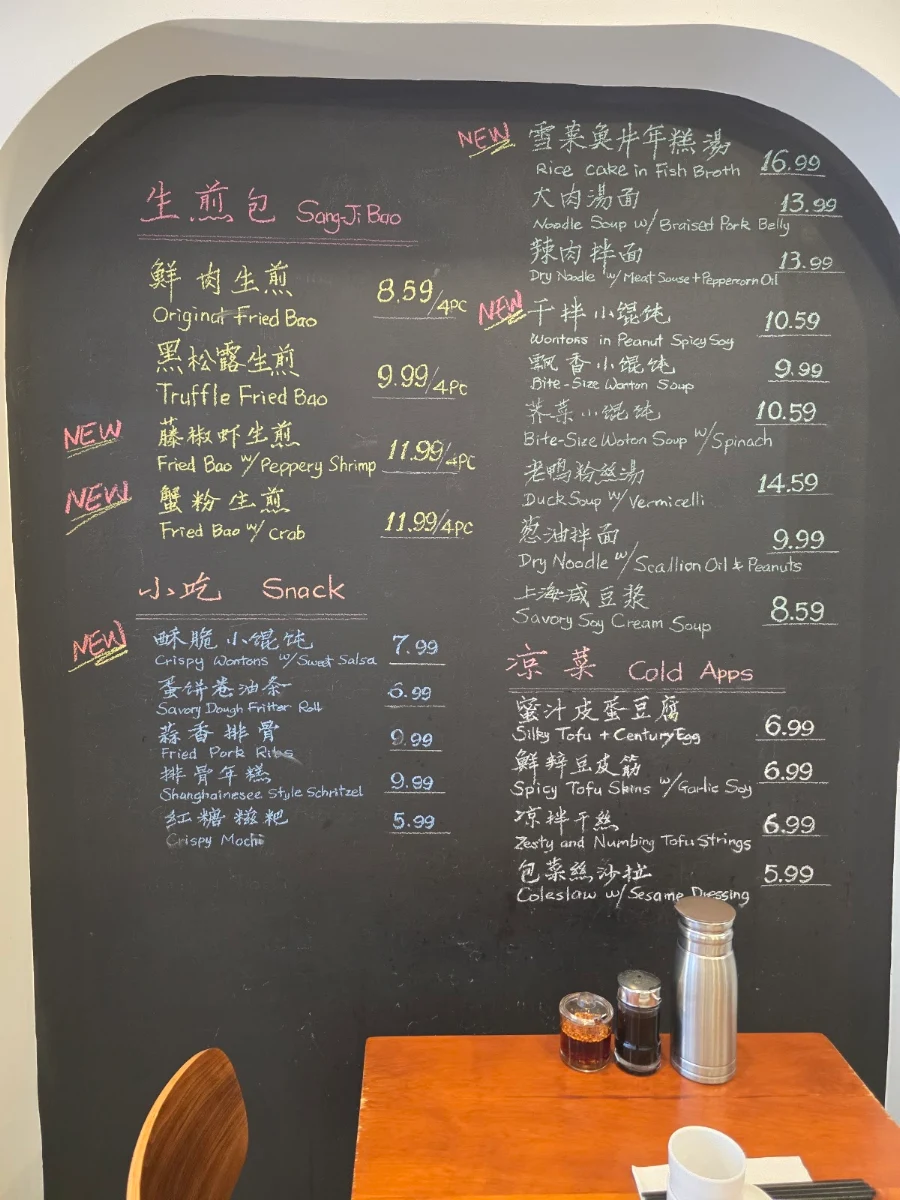 生煎包 Sang-Ji Bao
鮮肉生煎 8.59/4PC
Original Fried Bao
黑松露生煎 9.99/4PC
Truffle Fried Bao
NEW 藤椒虾生煎 11.99/4PC
Fried Bao w/Peppery Shrimp
NEW 蟹粉生煎 11.99/4PC
Fried Bao w/ Crab
小吃 Snack
NEW 酥脆小馄饨 7.99
Crispy Wontons w/Sweet Salsa
蛋饼卷油条 6.99
Savory Dough Fritter Roll
蒜香排骨 9.99
Fried Pork Ribs
排骨年糕 9.99
Shanghainesee Style Schnitzel
红糖糍粑 5.99
Crispy Mochi
NEW 雪菜魚片年糕湯 16.99
Rice cake in Fish Broth
大肉湯面 13.99
Noodle Soup w/ Braised Pork Belly
辣肉拌面 13.99
Dry Noodle w/Meat Souse+Peppercorn Oil
NEW 干拌小馄饨 10.59
Wontons in Peanut Spicy Soy
飘香小馄饨 9.99
Bite-Size Wonton Soup
荠菜小馄饨 10.59
Bite-Size Woton Soup w/Spinach
老鸭粉丝湯 14.59
Duck Soup w/Vermicelli
葱油拌面 9.99
Dry Noodle w/Scallion Oil & Peanuts
上海咸豆浆 8.59
Savory Soy Cream Soup
凉菜 Cold Apps
蜜汁皮蛋豆腐 6.99
Silky Tofu + Century Egg
鮮辣豆皮筋 6.99
Spicy Tofu Skins w/Garlic Soy
凉拌干丝 6.99
Zesty and Numbing Tofu Strings
包菜絲沙拉 5.99
Coleslaw w/Sesame Dressing